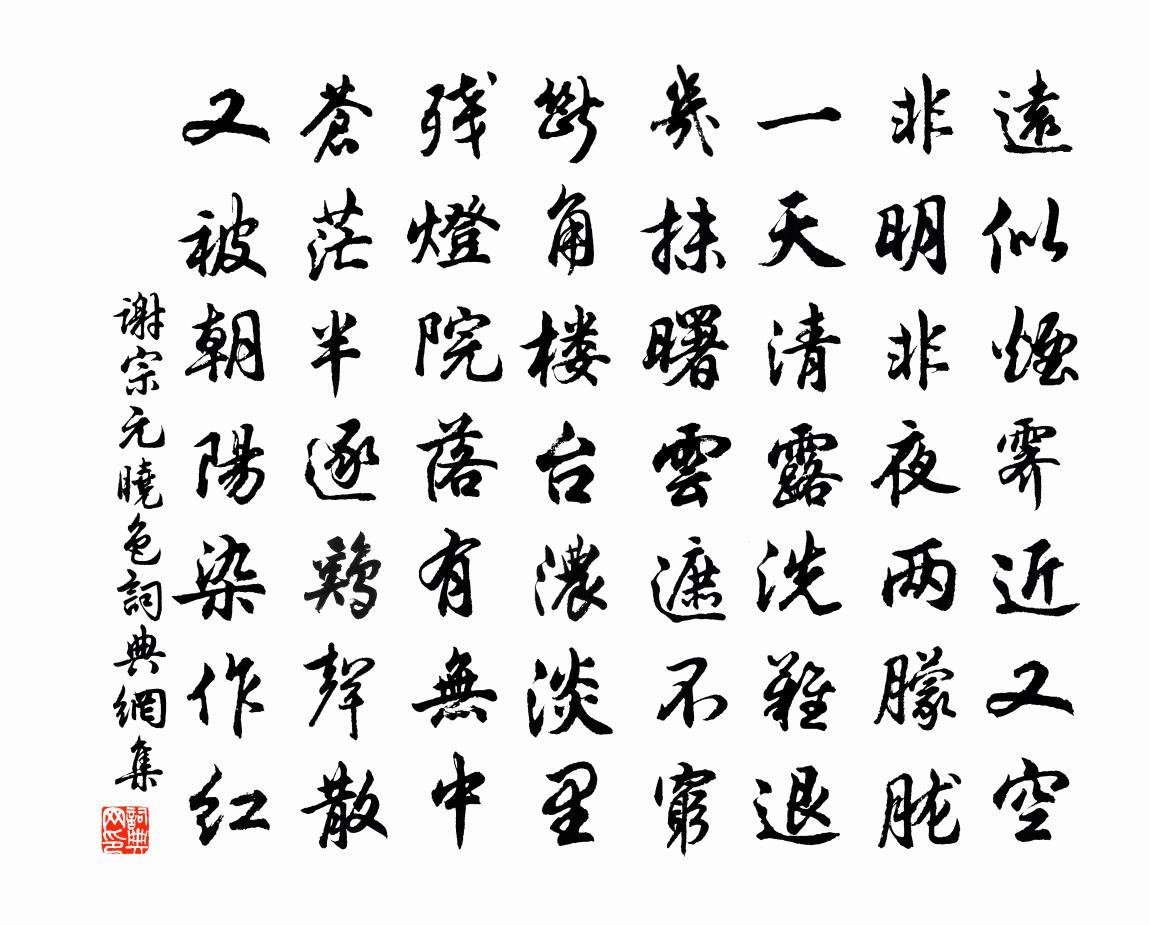 遠似煙霽近又空
非明非夜两朦胧
一天清露洗難退
幾抹曙雲遮不窮
斷角楼台濃淡里
残燈院落有無中
蒼茫半逐鶏聲散
又被朝陽染作红
谢宗元曉色詞典網集
詞典网印